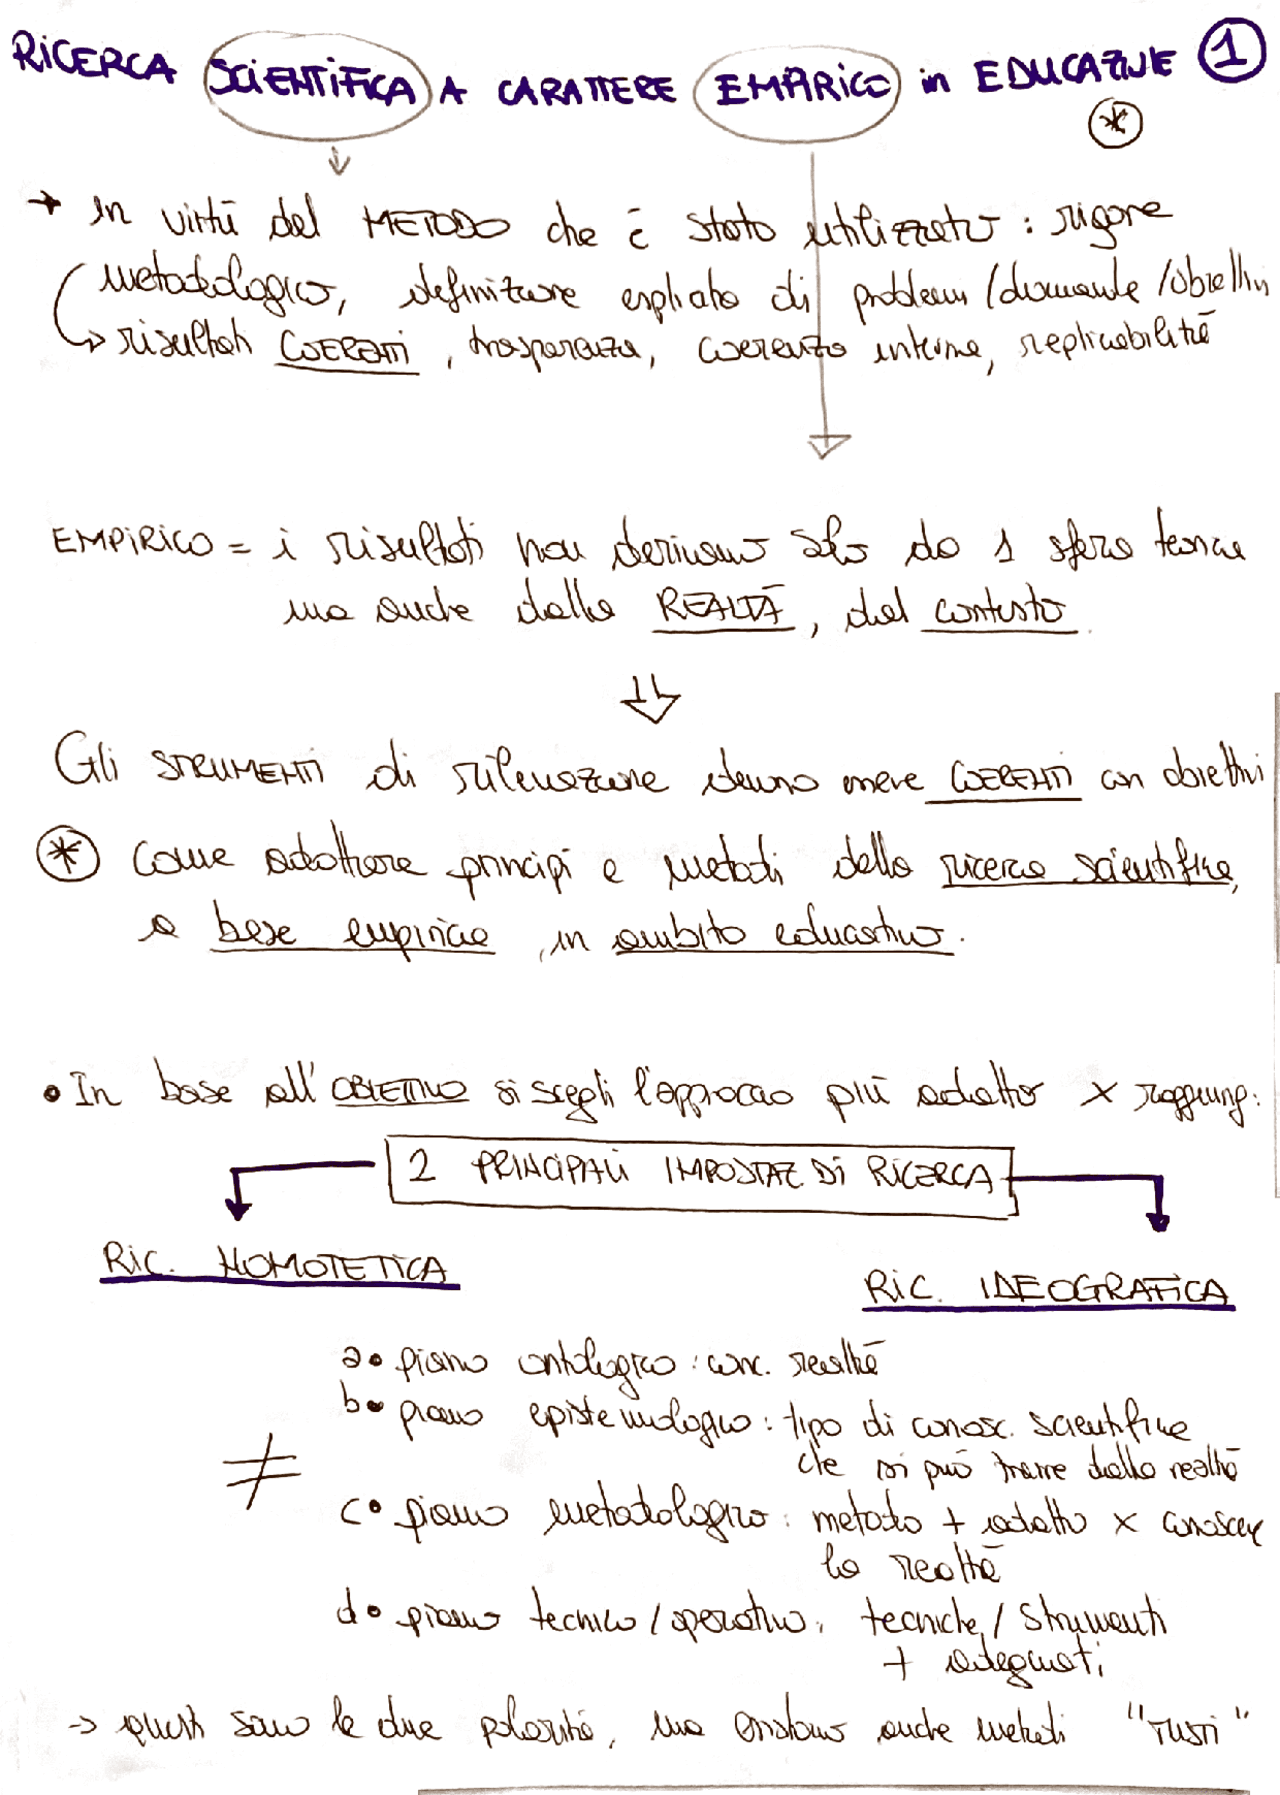 RICERCA SCIENTIFICA A CARATTERE EMPIRICO in EDUCAZIONE 1
*
→ in virtù del METODO che è stato utilizzato : rigore
metodologico, definizione esplicita di problemi /domande /obiettivi
↳ risultati COERENTI, trasparenza, coerenza interna, replicabilità
EMPIRICO = i risultati non derivano solo da 1 sfera teorica
ma anche dalla REALTÀ, dal contesto.
⇓
Gli STRUMENTI di rilevazione devono essere COERENTI con obiettivi
* Come adottare principi e metodi della ricerca scientifica,
a base empirica, in ambito educativo.
• In base all'OBIETTIVO si scegli l'approccio più adatto x raggiung:
2 PRINCIPALI IMPOSTAZ. DI RICERCA
RIC. NOMOTETICA
RIC. IDEOGRAFICA
a• piano ontologico : conc. realtà
b• piano epistemologico : tipo di conosc. scientifica
che si può trarre dalla realtà
≠
c• piano metodologico : metodo + adatto x conoscere
la realtà
d• piano tecnico / operativo : tecniche / strumenti
+ adeguati
→ questi sono le due polarità, ma esistono anche metodi "misti"